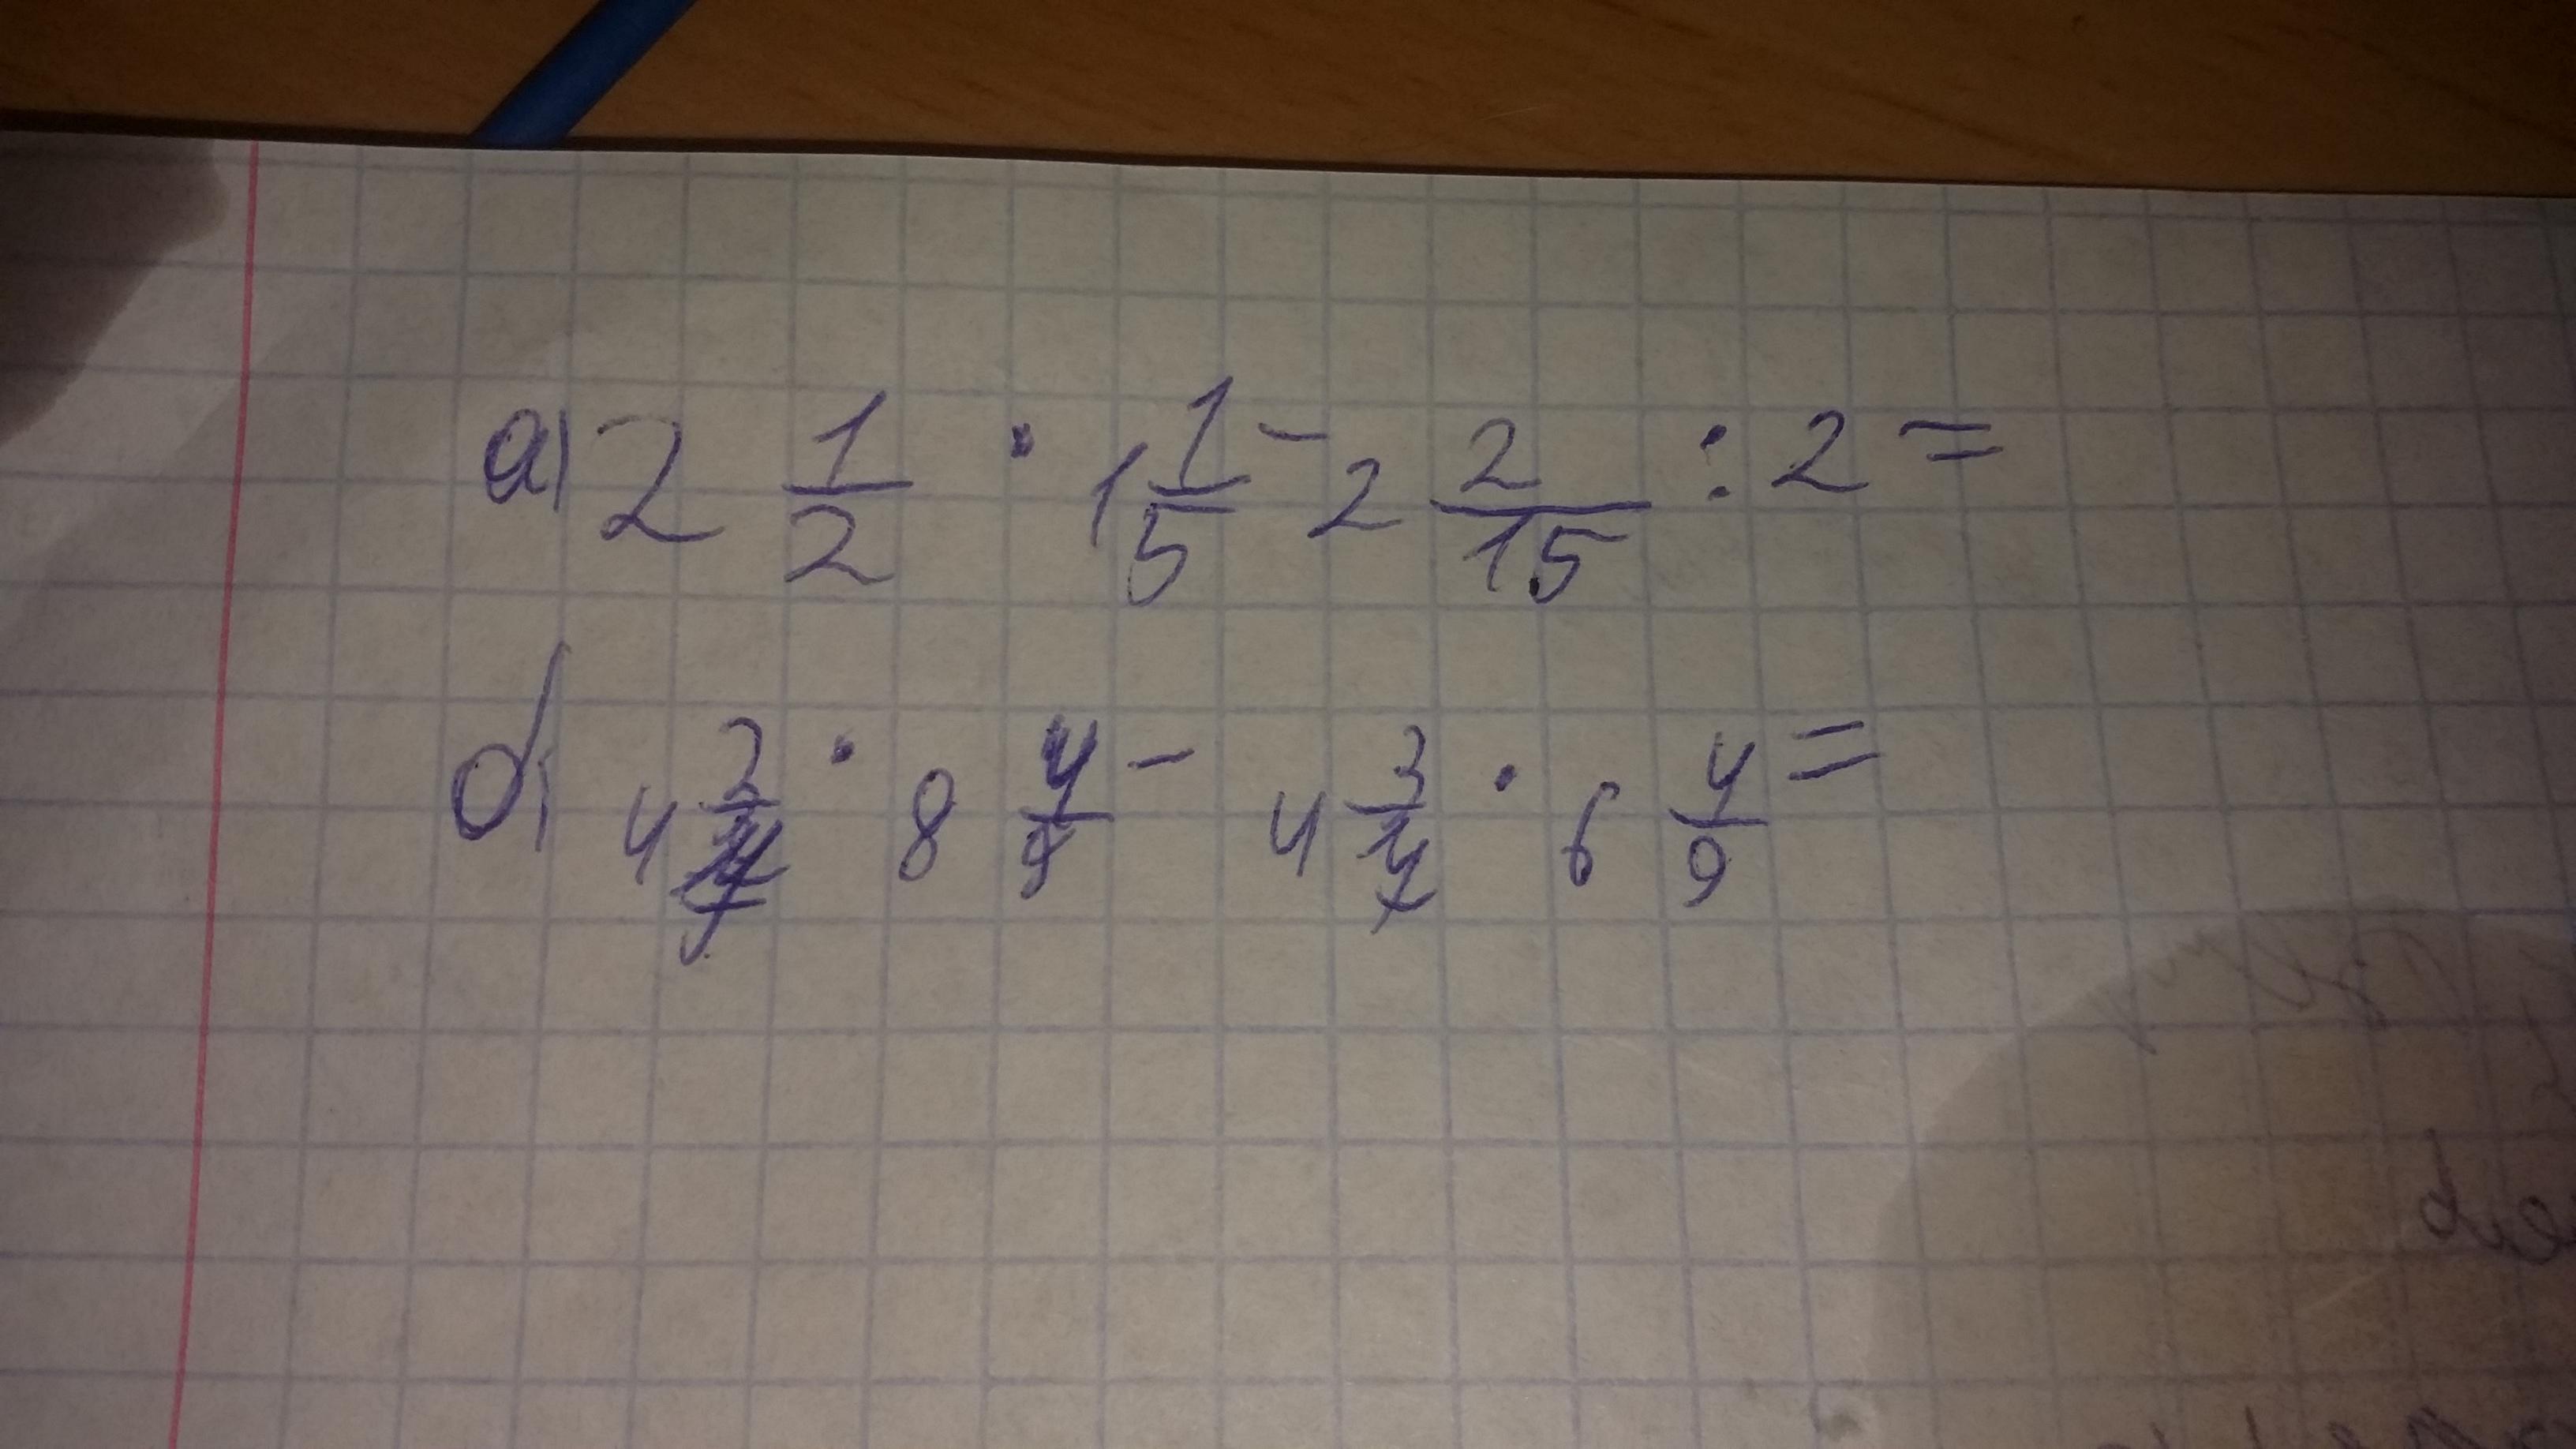 а) 2 1/2 · 1 1/5 - 2 2/15 : 2 =
б) 4 2/ · 8 4/9 - 4 3/ · 6 4/9 =